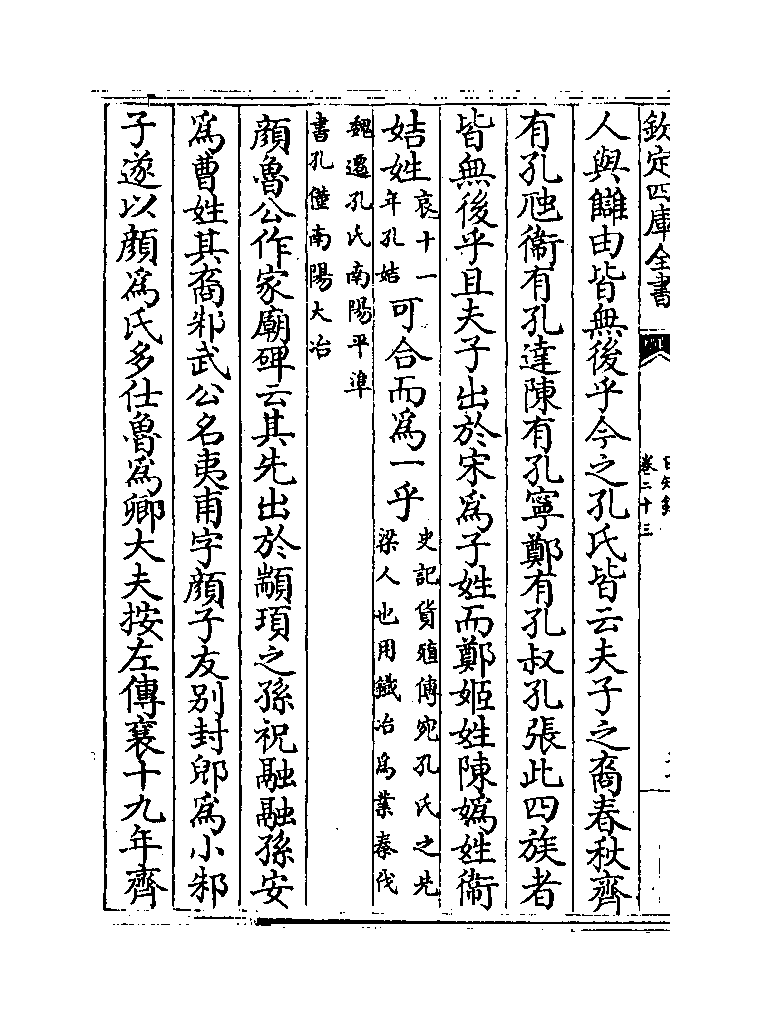 欽定四庫全書
日知錄
卷二十三
人與讎由皆無後乎今之孔氏皆云夫子之裔春秋齊
有孔虺衞有孔達陳有孔寧鄭有孔叔孔張此四族者
皆無後乎且夫子出於宋為子姓而鄭姬姓陳媯姓衞
姞姓
哀十一
年孔姞
可合而為一乎
史記貨殖傳宛孔氏之先
梁人也用鐵冶為業秦伐
魏遷孔氏南陽平準
書孔僅南陽大冶
顏魯公作家廟碑云其先出於顓頊之孫祝融融孫安
為曹姓其裔邾武公名夷甫字顏子友别封郳為小邾
子遂以顏為氏多仕魯為卿大夫按左傳襄十九年齊